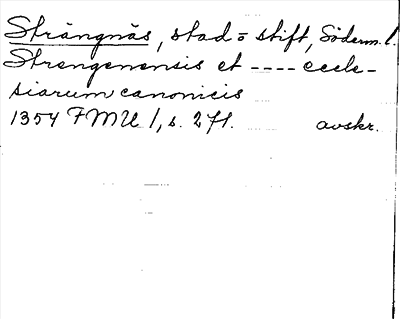 Strängnäs, stad = stift, Söderm. l.
Strengenensis et ---- eccle-
siarum canonicis
1354 FMU 1, s. 271. avskr.